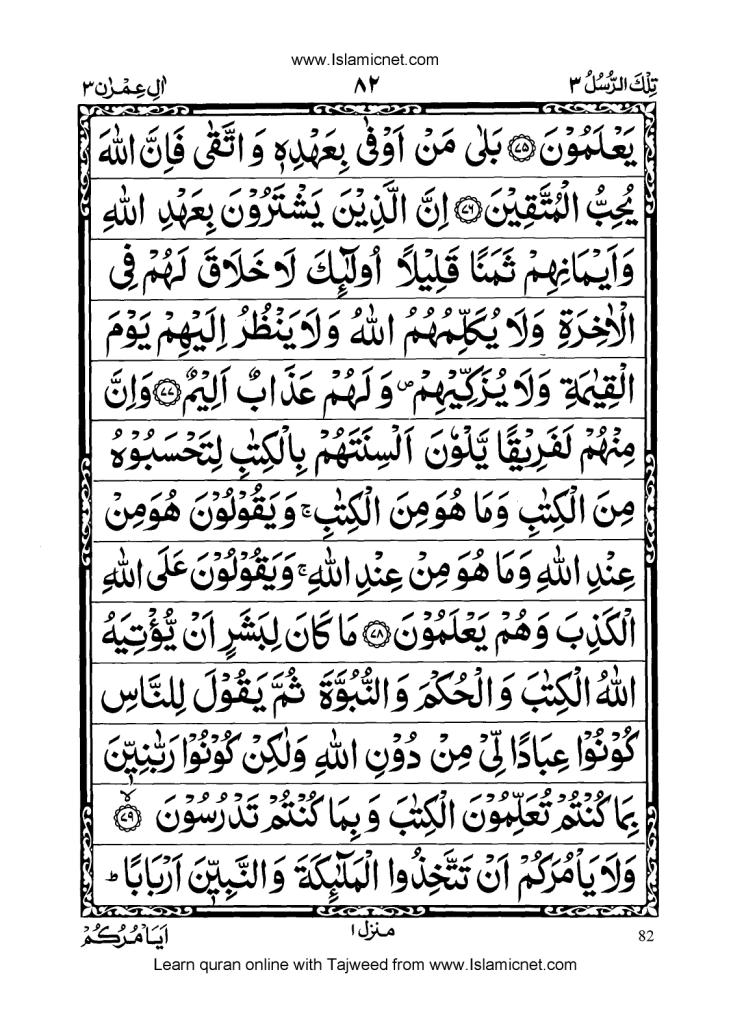 www.Islamicnet.com
تِلْكَ الرُّسُلُ ٣
٨٢
اٰلِ عِمْرٰن ٣
يَعْلَمُوْنَ ﴿٧٥﴾ بَلٰى مَنْ اَوْفٰى بِعَهْدِهٖ وَ اتَّقٰى فَاِنَّ اللّٰهَ
يُحِبُّ الْمُتَّقِيْنَ ﴿٧٦﴾ اِنَّ الَّذِيْنَ يَشْتَرُوْنَ بِعَهْدِ اللّٰهِ
وَاَيْمَانِهِمْ ثَمَنًا قَلِيْلًا اُولٰٓئِكَ لَا خَلَاقَ لَهُمْ فِى
الْاٰخِرَةِ وَلَا يُكَلِّمُهُمُ اللّٰهُ وَلَا يَنْظُرُ اِلَيْهِمْ يَوْمَ
الْقِيٰمَةِ وَلَا يُزَكِّيْهِمْ ۪ وَلَهُمْ عَذَابٌ اَلِيْمٌ ﴿٧٧﴾ وَاِنَّ
مِنْهُمْ لَفَرِيْقًا يَّلْوٗنَ اَلْسِنَتَهُمْ بِالْكِتٰبِ لِتَحْسَبُوْهُ
مِنَ الْكِتٰبِ وَمَا هُوَ مِنَ الْكِتٰبِ ۚ وَيَقُوْلُوْنَ هُوَ مِنْ
عِنْدِ اللّٰهِ وَمَا هُوَ مِنْ عِنْدِ اللّٰهِ ۚ وَيَقُوْلُوْنَ عَلَى اللّٰهِ
الْكَذِبَ وَهُمْ يَعْلَمُوْنَ ﴿٧٨﴾ مَا كَانَ لِبَشَرٍ اَنْ يُّؤْتِيَهُ
اللّٰهُ الْكِتٰبَ وَالْحُكْمَ وَالنُّبُوَّةَ ثُمَّ يَقُوْلَ لِلنَّاسِ
كُوْنُوْا عِبَادًا لِّىْ مِنْ دُوْنِ اللّٰهِ وَلٰكِنْ كُوْنُوْا رَبّٰنِيّٖنَ
بِمَا كُنْتُمْ تُعَلِّمُوْنَ الْكِتٰبَ وَبِمَا كُنْتُمْ تَدْرُسُوْنَ ﴿٧٩﴾ لا
وَلَا يَاْمُرَكُمْ اَنْ تَتَّخِذُوا الْمَلٰٓئِكَةَ وَالنَّبِيّٖنَ اَرْبَابًا ؕ
منزل ١
اَيَاْمُرُكُمْ
82
Learn quran online with Tajweed from www.Islamicnet.com